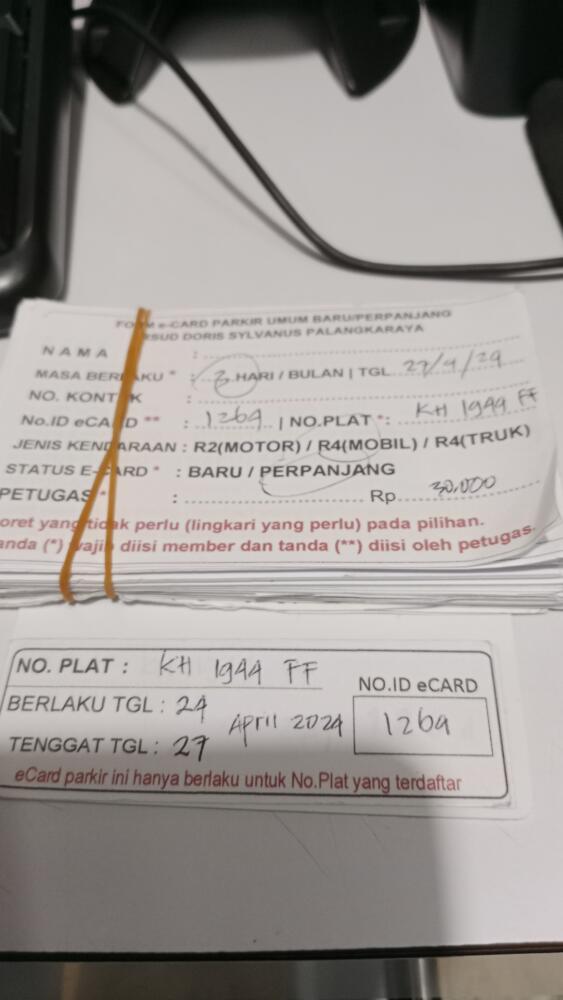 FORM e-CARD PARKIR UMUM BARU/PERPANJANG
RSUD DORIS SYLVANUS PALANGKARAYA
NAMA :
MASA BERLAKU * : 3 HARI / BULAN | TGL 27/4/24
NO. KONTAK :
No.ID eCARD ** : 1269 | NO.PLAT *: KH 1944 FF
JENIS KENDARAAN : R2(MOTOR) / R4(MOBIL) / R4(TRUK)
STATUS E-CARD * : BARU / PERPANJANG
PETUGAS * : Rp 30.000
oret yang tidak perlu (lingkari yang perlu) pada pilihan.
anda (*) wajib diisi member dan tanda (**) diisi oleh petugas.
NO. PLAT : KH 1944 FF
BERLAKU TGL : 24 April 2024
NO.ID eCARD
1269
TENGGAT TGL : 27
eCard parkir ini hanya berlaku untuk No.Plat yang terdaftar